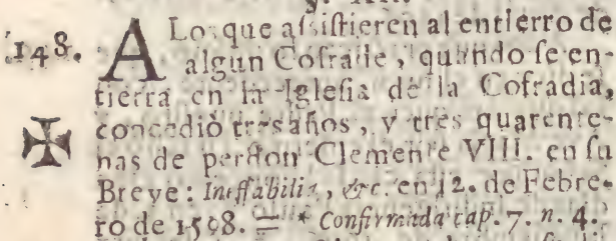 148. A Los que assistieren al entierro de
algun Cofrade, quando se en-
tierra en la Iglesia de la Cofradia,
concediò tres años, y tres quarente-
nas de perdon Clemente VIII. en su
Breve: Ineffabilia, &c. en 12. de Febre-
ro de 1598. = * Confirmada cap. 7. n. 4.